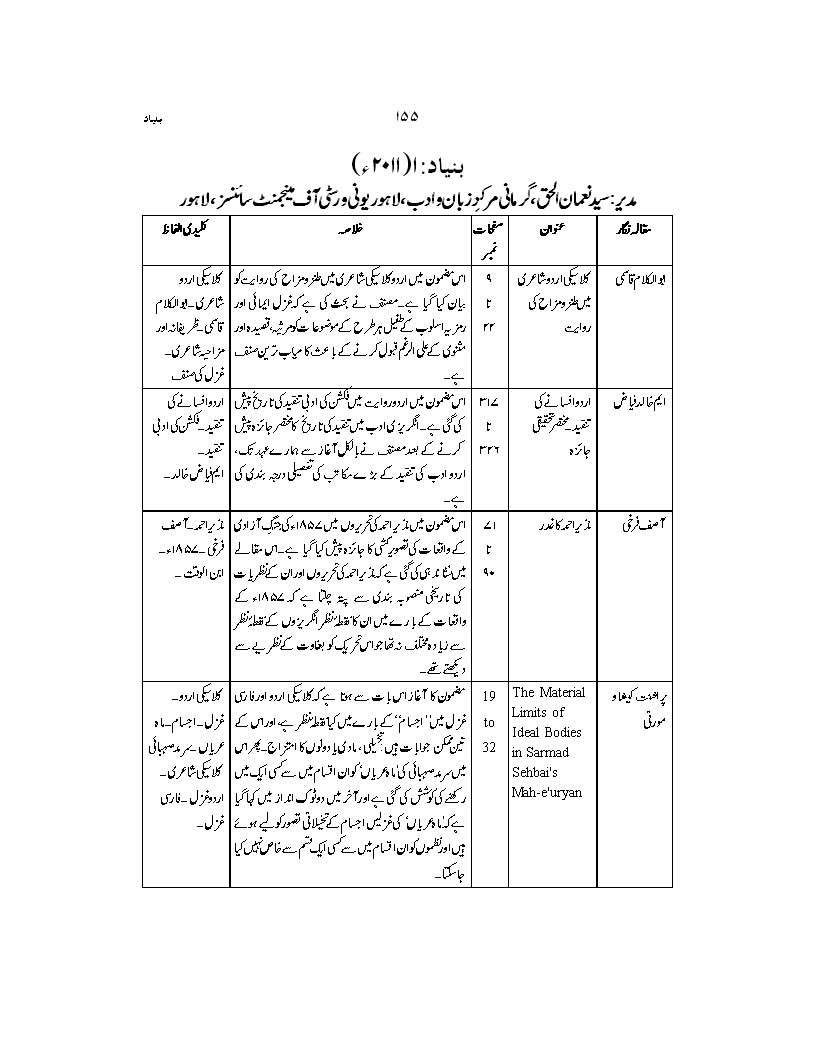 ۱۵۵
بنیاد
بنیاد: ۱ (۲۰۱۱ء)
مدیر: سید نعمان الحق، گرمانی مرکزِ زبان و ادب، لاہور یونی ورسٹی آف مینجمنٹ سائنسز، لاہور
مقالہ نگار
عنوان
صفحات
نمبر
خلاصہ
کلیدی الفاظ
ابوالکلام قاسمی
کلاسیکی اردو شاعری
میں طنز و مزاح کی
روایت
۹
تا
۲۲
اس مضمون میں اردو کلاسیکی شاعری میں طنز و مزاح کی روایت کو
بیان کیا گیا ہے۔ مصنف نے بحث کی ہے کہ غزل ایمائی اور
رمزیہ اسلوب کے طفیل ہر طرح کے موضوعات کو مرثیہ، قصیدہ اور
مثنوی کے علی الرغم قبول کرنے کے باعث کامیاب ترین صنف
ہے۔
کلاسیکی اردو
شاعری۔ ابوالکلام
قاسمی۔ ظریفانہ اور
مزاحیہ شاعری۔
غزل کی صنف
ایم خالد فیاض
اردو افسانے کی
تنقید۔ مختصر تحقیقی
جائزہ
۳۱۷
تا
۳۳۶
اس مضمون میں اردو روایت میں فکشن کی ادبی تنقید کی تاریخ پیش
کی گئی ہے۔ انگریزی ادب میں تنقید کی تاریخ کا مختصر جائزہ پیش
کرنے کے بعد مصنف نے بالکل آغاز سے ہمارے عہد تک،
اردو ادب کی تنقید کے بڑے مکاتب کی تفصیلی درجہ بندی کی
ہے۔
اردو افسانے کی
تنقید۔ فکشن کی ادبی
تنقید۔
ایم فیاض خالد۔
آصف فرخی
نذیر احمد کا غدر
۷۱
تا
۹۰
اس مضمون میں نذیر احمد کی تحریروں میں ۱۸۵۷ء کی جنگِ آزادی
کے واقعات کی تصویر کشی کا جائزہ پیش کیا گیا ہے۔ اس مقالے
میں نشاندہی کی گئی ہے کہ نذیر احمد کی تحریروں اور ان کے نظریات
کی تاریخی منصوبہ بندی سے پتہ چلتا ہے کہ ۱۸۵۷ء کے
واقعات کے بارے میں ان کا نقطۂ نظر انگریزوں کے نقطۂ نظر
سے زیادہ مختلف نہ تھا جو اس تحریک کو بغاوت کے نظریے سے
دیکھتے تھے۔
نذیر احمد۔ آصف
فرخی۔ ۱۸۵۷ء۔
ابن الوقت۔
پراشنت کیشاو
مورتی
The Material
Limits of
Ideal Bodies
in Sarmad
Sehbai's
Mah-e'uryan
19
to
32
مضمون کا آغاز اس بات سے ہوتا ہے کہ کلاسیکی اردو اور فارسی
غزل میں 'اجسام' کے بارے میں کیا نقطۂ نظر ہے اور اس کے
تین ممکن جوابات ہیں: تخیلی، مادی یا دونوں کا امتزاج۔ پھر اس
میں سرمد صہبائی کی 'ماہ عریاں' کو ان اقسام میں سے کسی ایک میں
رکھنے کی کوشش کی گئی ہے اور آخر میں دوٹوک انداز میں کہا گیا
ہے کہ 'ماہ عریاں' کی غزلیں اجسام کے تخیلاتی تصور کو لیے ہوئے
ہیں اور نظموں کو ان اقسام میں سے کسی ایک قسم سے خاص نہیں کیا
جا سکتا۔
کلاسیکی اردو۔
غزل۔ اجسام۔ ماہ
عریاں۔ سرمد صہبائی
کلاسیکی شاعری۔
اردو غزل۔ فارسی
غزل۔